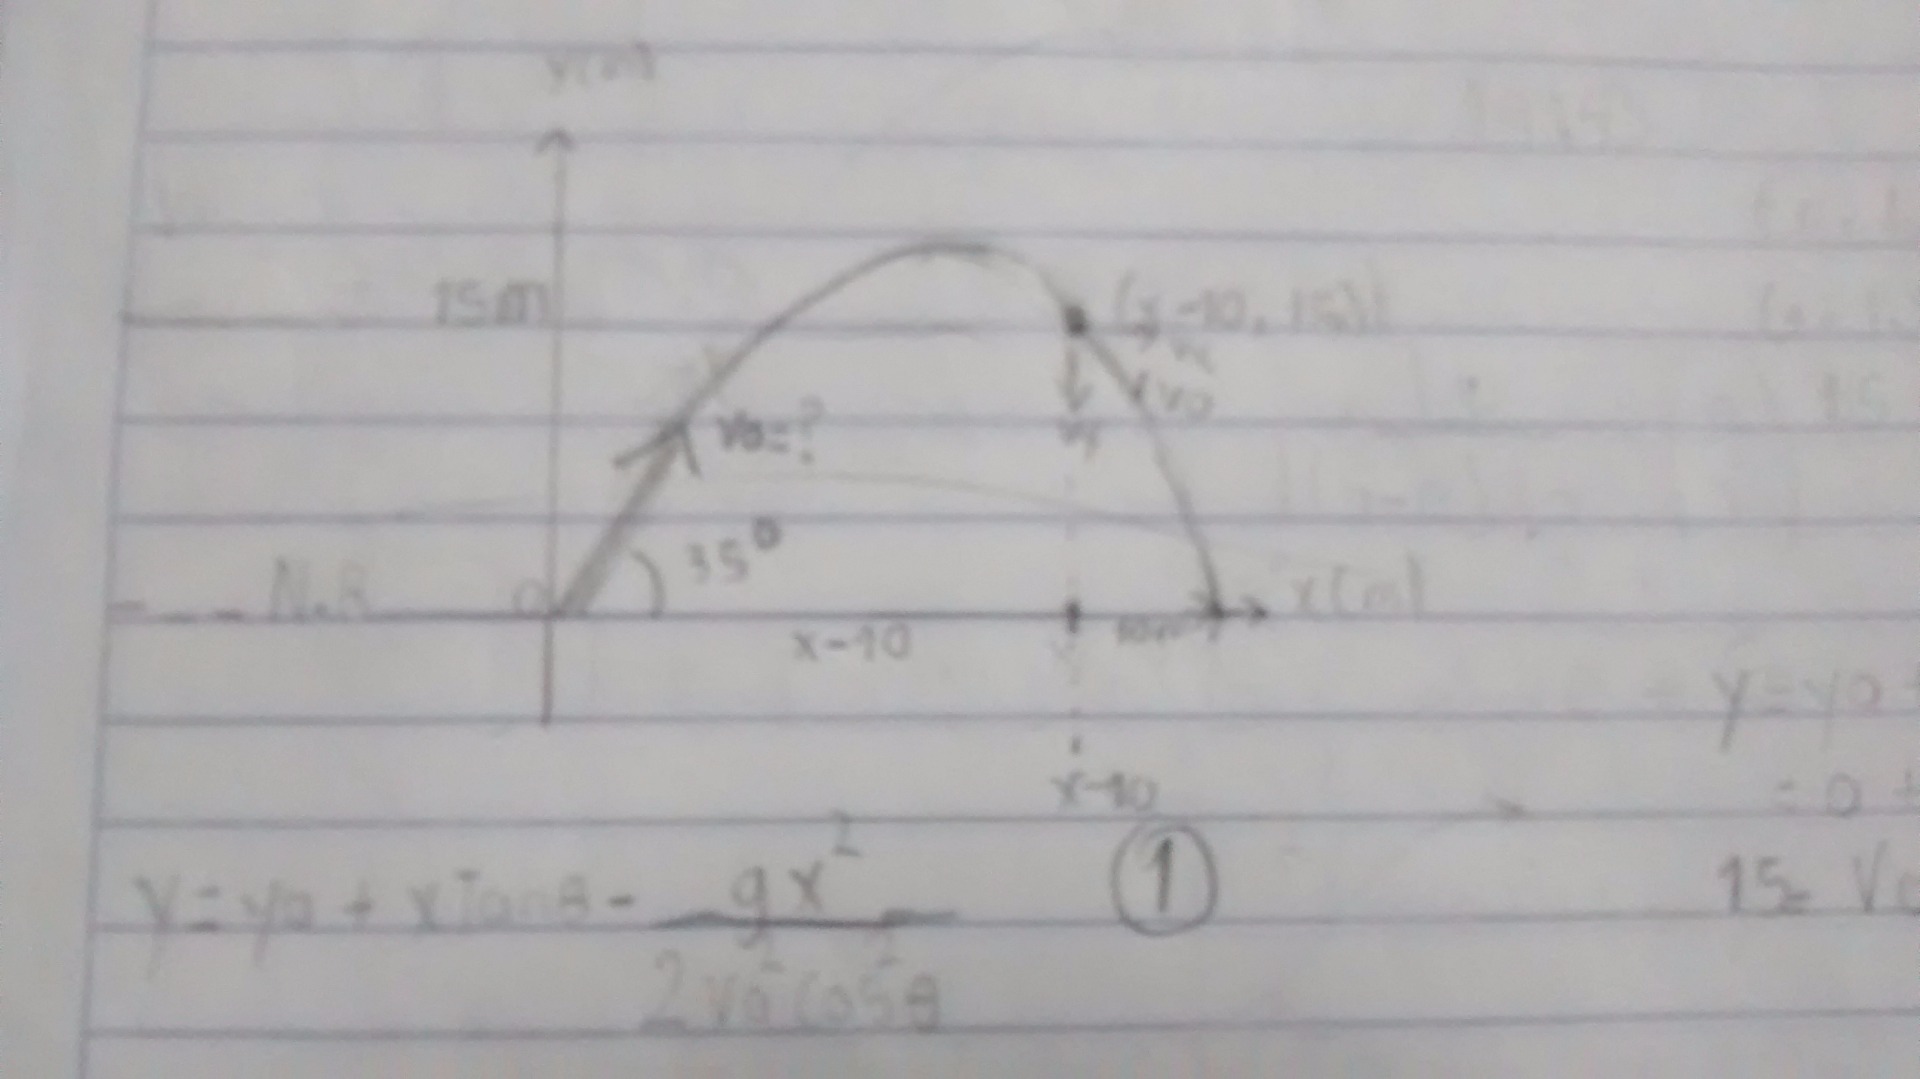 y(m)
15m
(x-10, 15)
vx
vo
vy
vo=?
35°
N.R
0
x(m)
x-10
10m
x-10
y=yo+
=0+
y=yo+xTanθ- gx² / 2vo²cos²θ
1
15= Vo